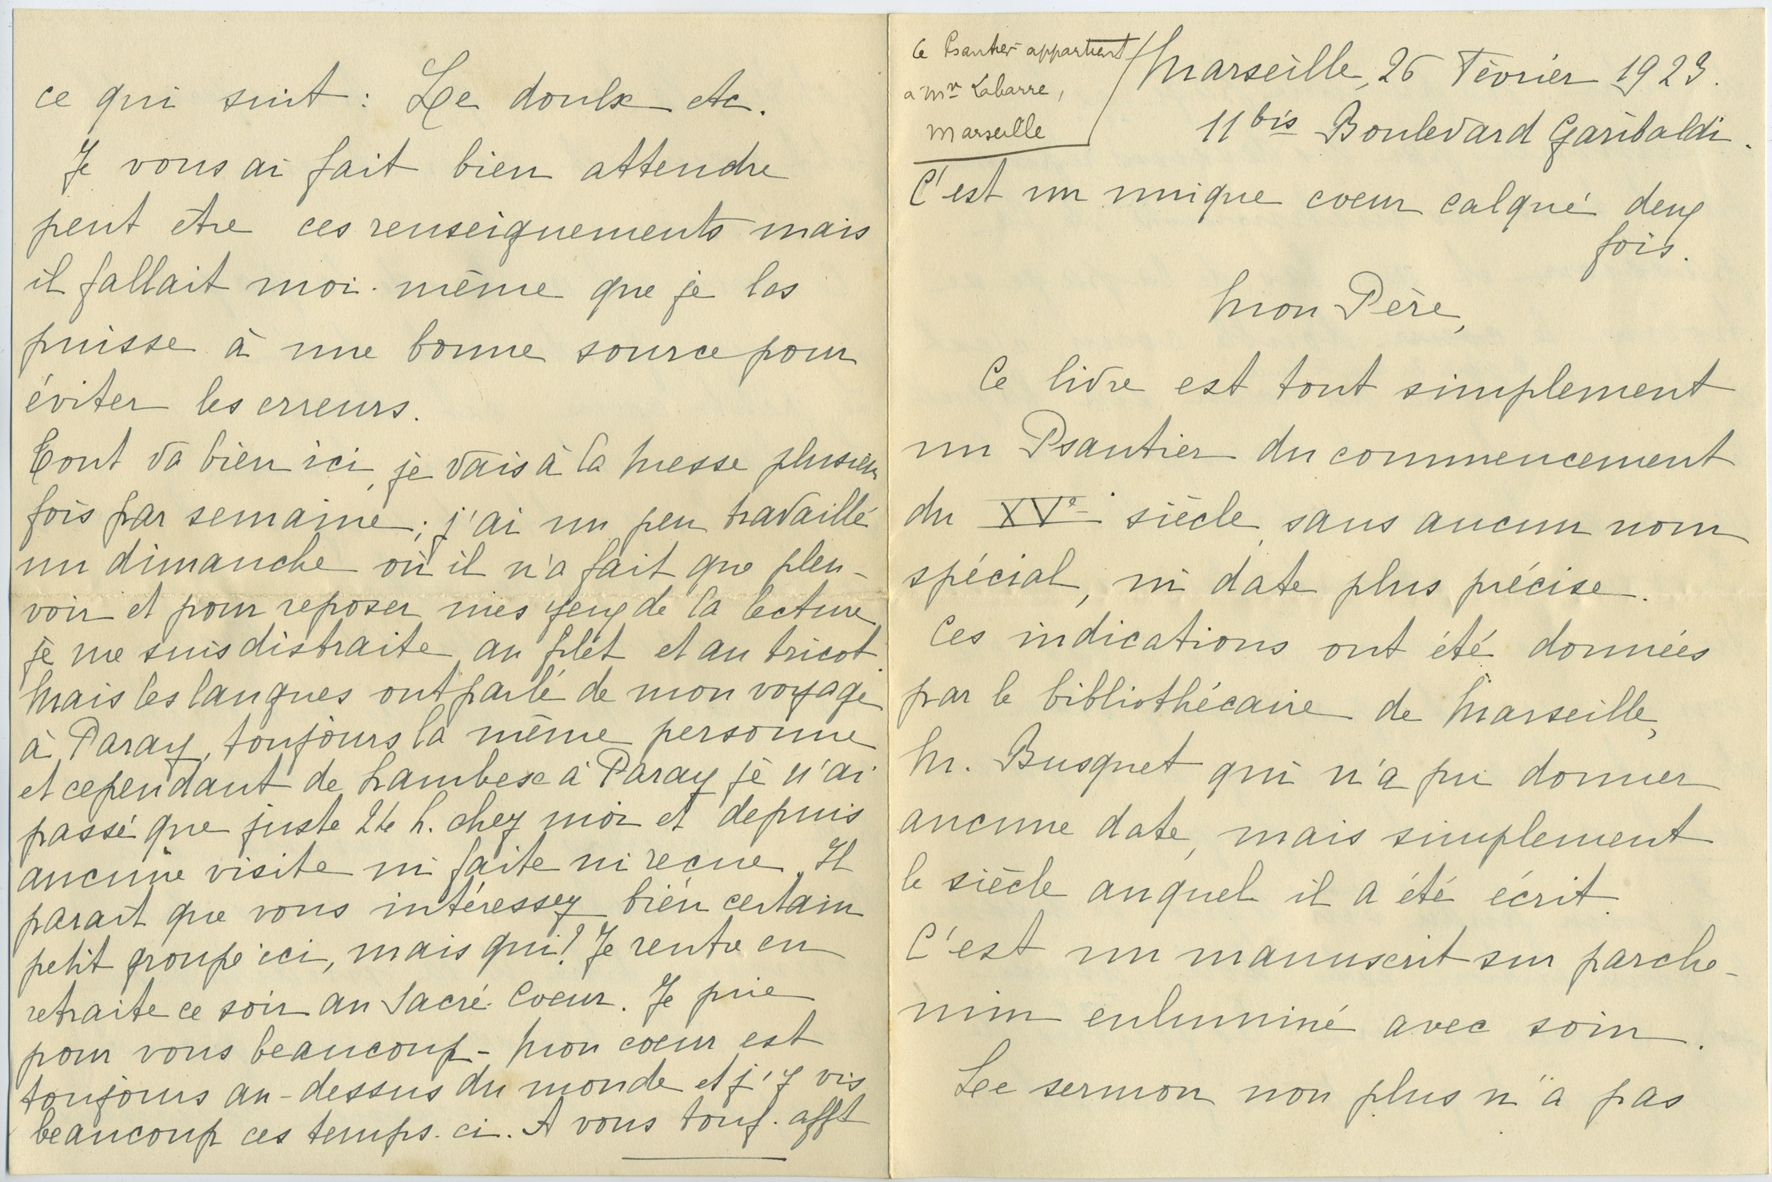 ce qui suit : Le doulx etc.
Je vous ai fait bien attendre
peut être ces renseignements mais
il fallait moi-même que je les
puisse à une bonne source pour
éviter les erreurs.
Tout va bien ici, je vais à la Messe plusieurs
fois par semaine ; j'ai un peu travaillé
un dimanche où il n'a fait que pleu-
voir et pour reposer mes yeux de la lecture
je me suis distraite au filet et au tricot.
Mais les langues ont parlé de mon voyage
à Paray, toujours la même personne
et cependant de Lambesc à Paray je n'ai
passé que juste 24 h. chez moi et depuis
aucune visite ni faite ni reçue. Il
parait que vous intéressez bien certain
petit groupe ici, mais qui? Je rentre en
retraite ce soir au Sacré Coeur. Je prie
pour vous beaucoup - Mon coeur est
toujours au-dessus du monde et j'y vis
beaucoup ces temps-ci. A vous touj. afft
Ce Psautier appartient
a Mr Labarre,
Marseille
Marseille, 26 Février 1923.
11 bis Boulevard Garibaldi.
C'est un unique coeur calqué deux
fois.
Mon Père,
Ce livre est tout simplement
un Psautier du commencement
du XVe siècle, sans aucun nom
spécial, ni date plus précise.
Ces indications ont été données
par le bibliothécaire de Marseille,
M. Busquet qui n'a pu donner
aucune date, mais simplement
le siècle auquel il a été écrit.
C'est un manuscrit sur parche-
min enluminé avec soin.
Le sermon non plus n'a pas